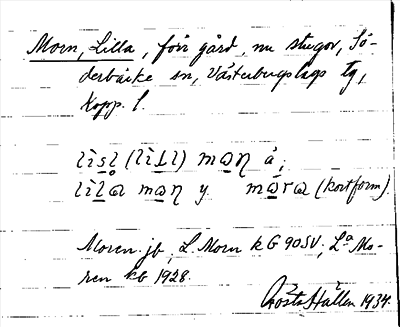 Morn, Lilla, förr gård, nu stugor, Sö-
derbärke sn, Västerbergslags tg,
Kopp. l.
lìsl (lìɪl) mɷn å;
lìlɷ mɷn y. mɷrɷ (kortform)
Moren jb, L. Morn kG 90SV, L:a Mo-
ren kG 1928.
Gösta Hallén 1934.